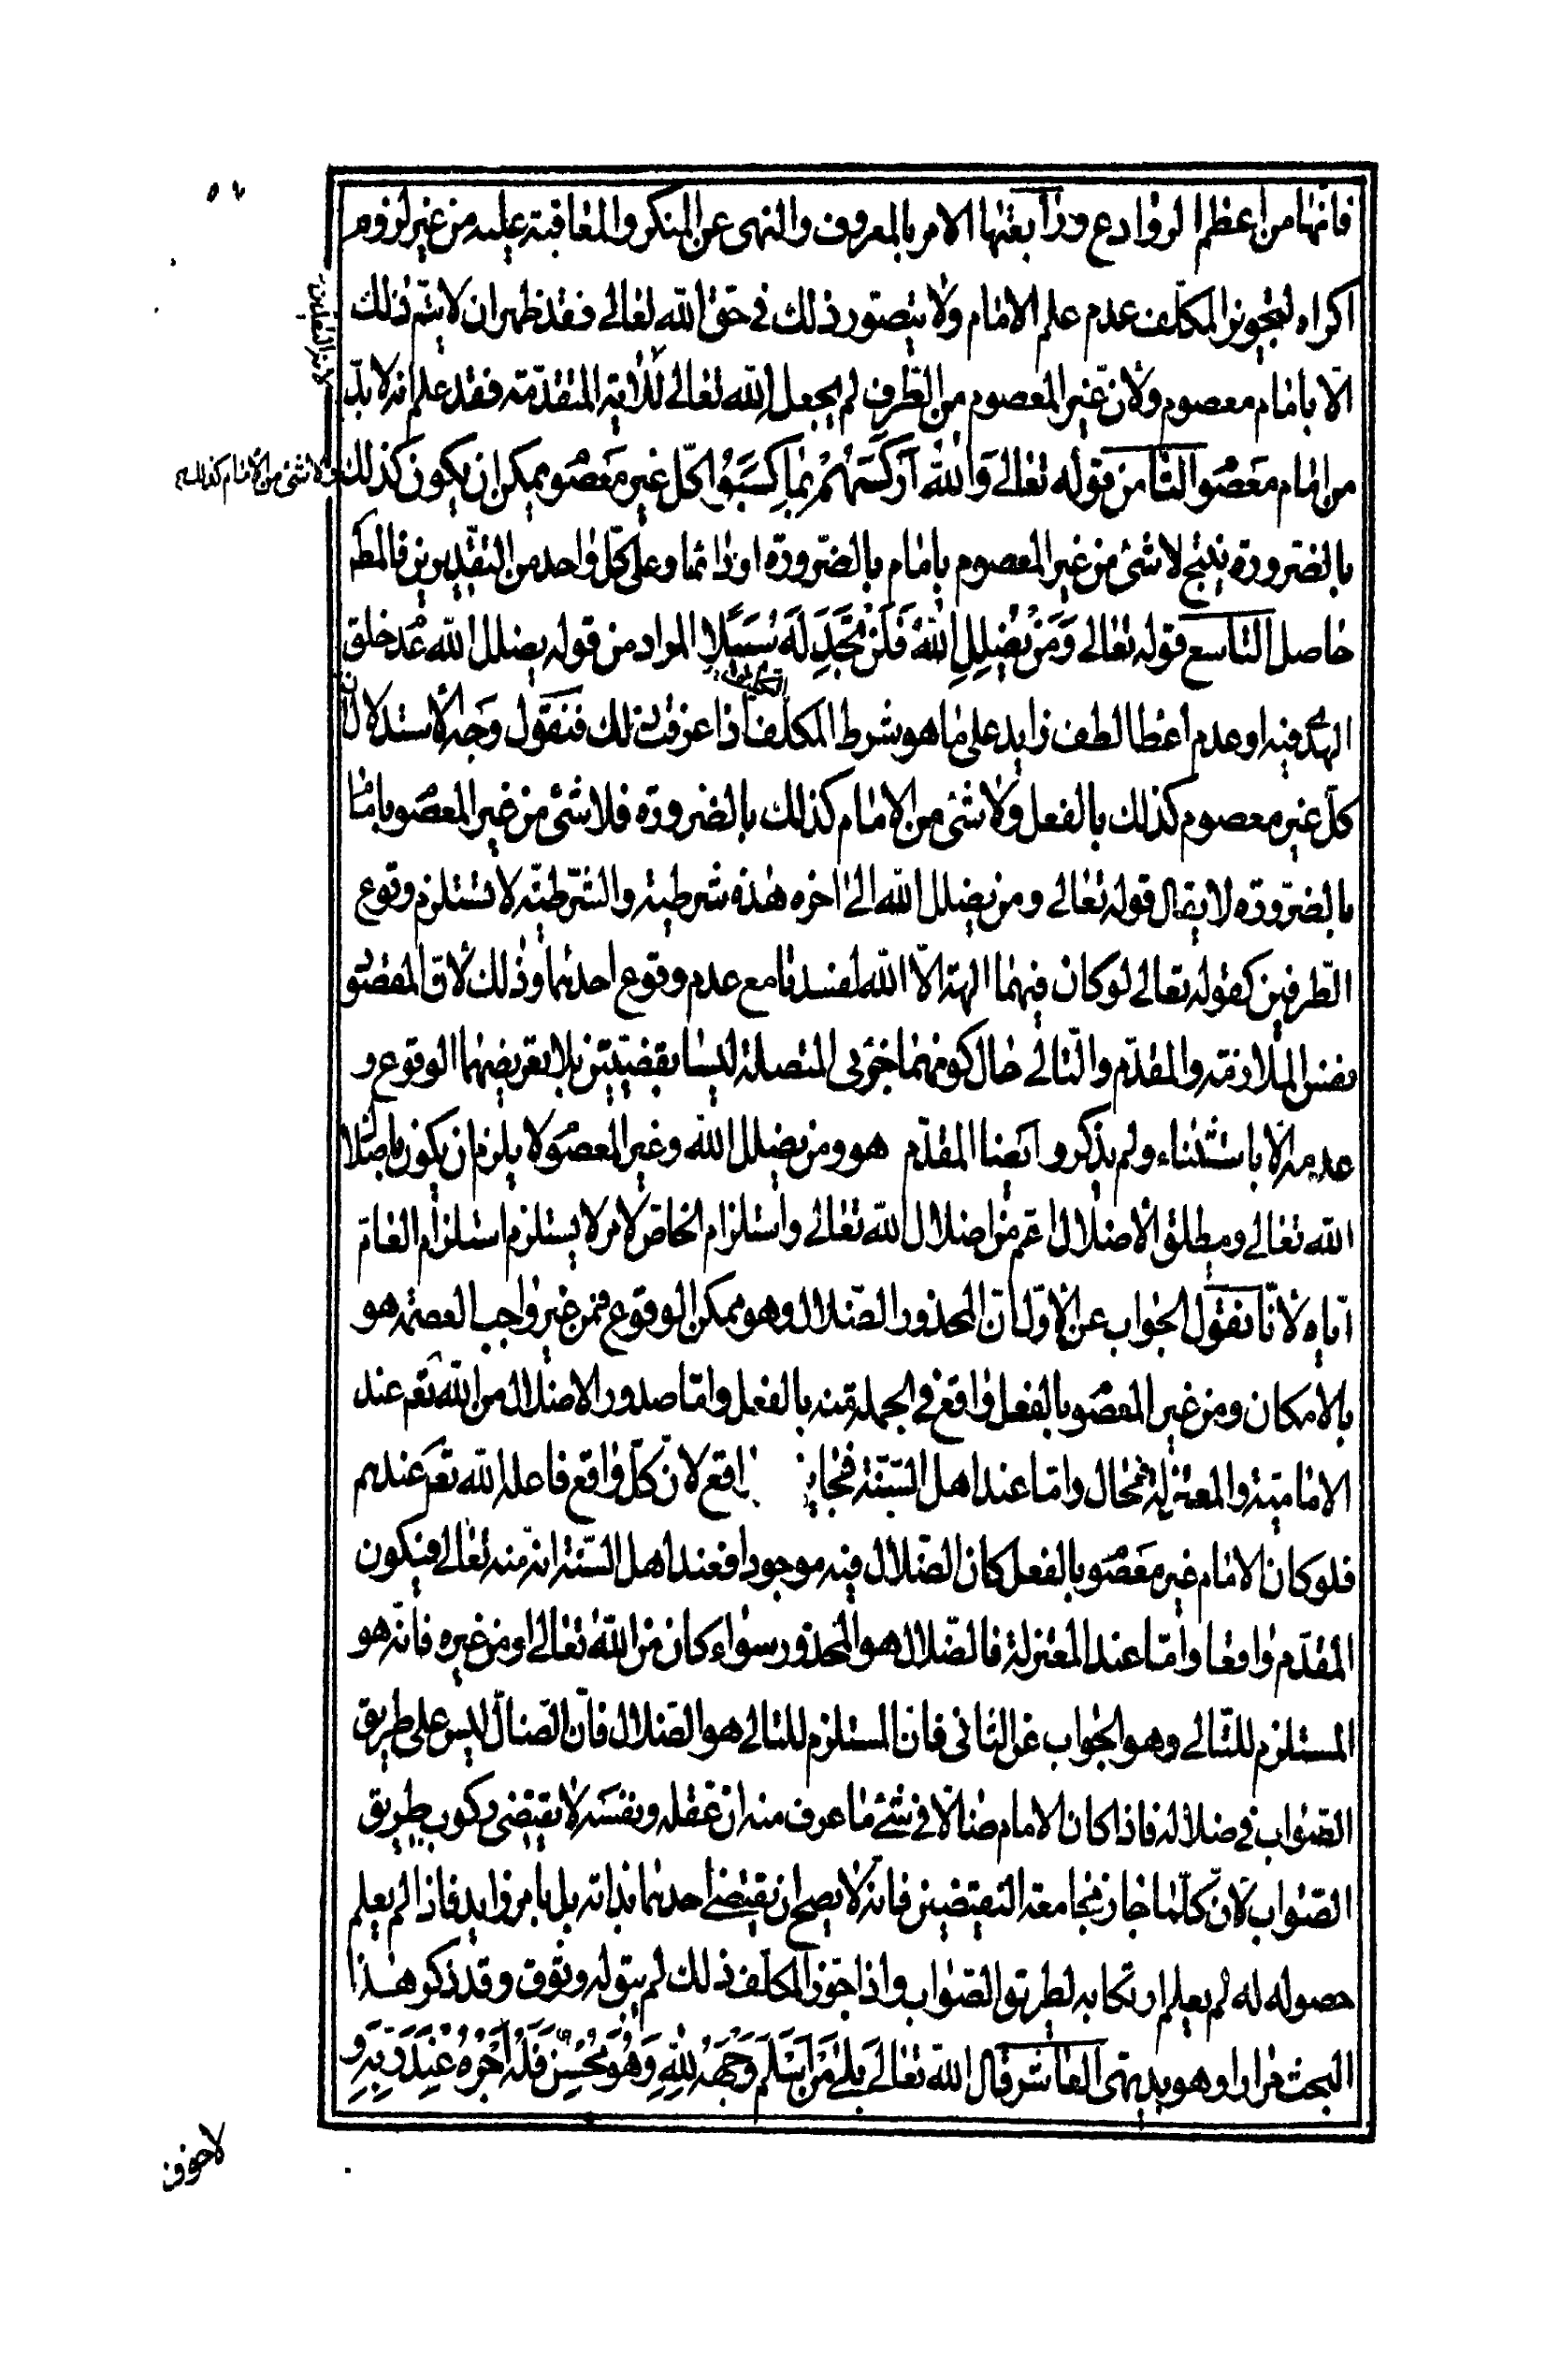 فانها من اعظم الروادع ورابعتها الامر بالمعروف والنهى عن المنكر والمعاقبة عليه من غير لزوم
اكراه لتجويز المكلف عدم علم الامام ولا يتصور ذلك فى حق الله تعالى فقد ظهر ان لا يتم ذلك
الا بامام معصوم ولان غير المعصوم من الطرف لم يجعل الله تعالى للآية المتقدمة فقد علم انه لا بد
من امام معصو الثامن قوله تعالى وَاللهُ اَرْكَسَهُمْ بِمٰا كَسَبُوا كل غير معصو يمكن ان يكون كذلك
ولا شئ من الامام كذلك
بالضرورة ينتج لا شئ من غير المعصوم بامام بالضرورة او دائما وعلى كل واحد من التقديرين فالمط
حاصل التاسع قوله تعالى وَمَنْ يُضْلِلِ اللهُ فَلَنْ تَجِدَ لَهُ سَبيلاً المراد من قوله يضلل الله عدم خلق
الهدى فيه او عدم اعطا لطف زايد على ما هو شرط المكلف اذا عرفت ذلك فنقول وجه الاستدلال ان
كل غير معصوم كذلك بالفعل ولا شئ من الامام كذلك بالضرورة فلا شئ من غير المعصو بامام
بالضرورة لا يقال قوله تعالى ومن يضلل الله الى اخره هذه شرطية والشرطية لا تستلزم وقوع
الطرفين كقوله تعالى لو كان فيهما الهة الا الله لفسدتا مع عدم وقوع احدهما وذلك لان المقصود
نفس الملازمة والمقدم والتالى حال كونهما جزئى المتصلة ليسا بقضيتين بلا تعريضهما الوقوع و
عدمه الا باستثناء ولم يذكر وايضا المقدم هو ومن يضلل الله وغير المعصو لا يلزم ان يكون باضلال
الله تعالى ومطلق الاضلال اعم من اضلال الله تعالى واستلزام الخاص لامر لا يستلزم استلزام العام
اياه لانا نقول الجواب عن الاول ان المحذور الضلال وهو ممكن الوقوع فمن غير واجب العصمة هو
بالامكان ومن غير المعصو بالفعل واقع فى الجملة منه بالفعل واما صدور الاضلال من الله تعم عند
الامامية والمعتزلة فمحال واما عند اهل السنة فجايز واقع لان كل واقع فاعله الله تعم عندهم
فلو كان الامام غير معصو بالفعل كان الضلال فيه موجودا فعند اهل السنة انه منه تعالى فيكون
المقدم واقعا واما عند المعتزلة فالضلال هو المحذور سواء كان من الله تعالى او من غيره فانه هو
المستلزم للتالى وهو الجواب عن الثانى فان المستلزم للتالى هو الضلال فان الضال ليس على طريق
الصواب فى ضلاله فاذا كان الامام ضالا فى شئ ما عرف منه ان عقله ونفسه لا يقتضى ركوب طريق
الصواب لان كلما جاز مجامعة النقيضين فانه لا يصح ان يقتضى احدهما بذاته بل بامر زايد فاذا لم يعلم
حصوله له لم يعلم ارتكابه لطريق الصواب واذا جوز المكلف ذلك لم يبق له وثوق وقد ذكر هذا
البحث مرارا وهو بديهى العاشر قال الله تعالى بَلىٰ مَنْ اَسْلَمَ وَجْهَهُ لِلهِ وَهُوَ مُحْسِنٌ فَلَهُ اَجْرُهُ عِنْدَ رَبِّهِ وَ
لا خوف